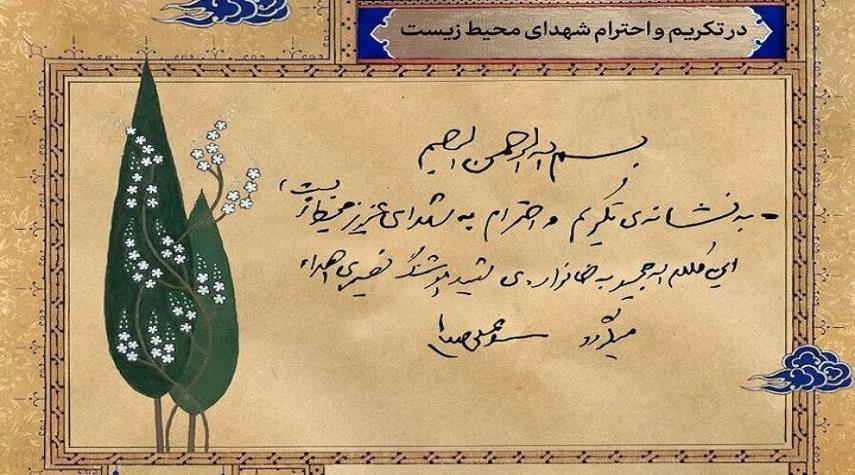 در تکریم و احترام شهدای محیط زیست
بسم الله الرحمن الرحیم
- به نشانه‌ی تکریم و احترام به شهدای عزیز محیط زیست،
این کلام الله مجید به خانواده‌ی شهید هوشنگ نصیری اهداء
میگردد